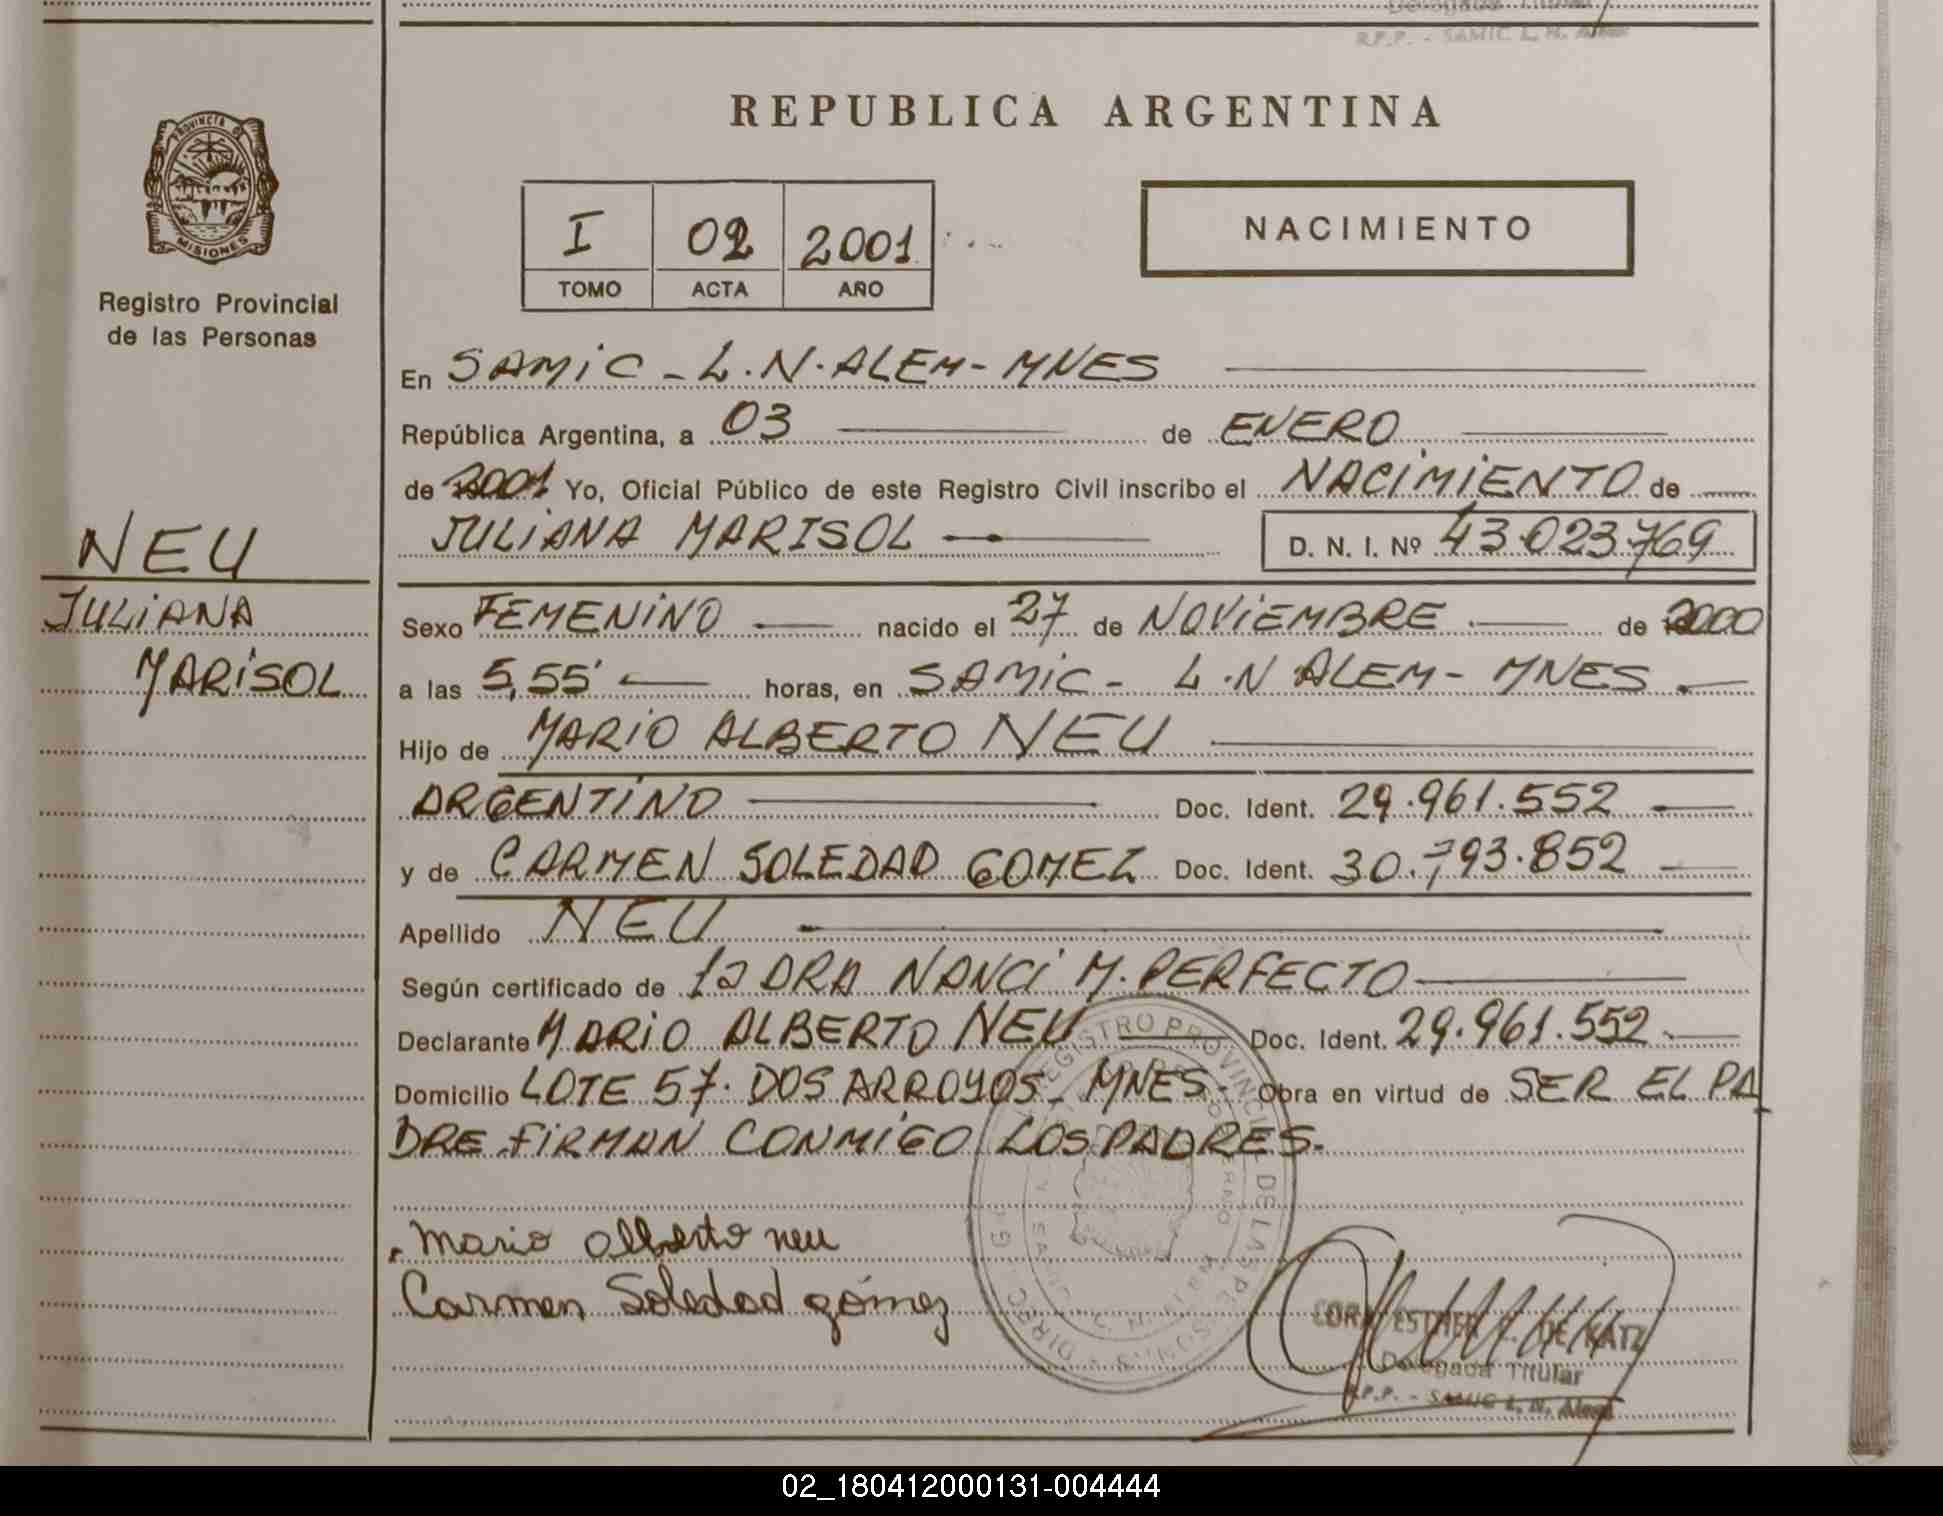 Delegada Titular
R.P.P. - SAMIC L. N. Alem
REPUBLICA ARGENTINA
PROVINCIA DE
MISIONES
Registro Provincial
de las Personas
I 02 2001
TOMO ACTA AÑO
NACIMIENTO
En SAMIC - L.N. ALEM - MNES
República Argentina, a 03 de ENERO
de 2001 Yo, Oficial Público de este Registro Civil inscribo el NACIMIENTO de
JULIANA MARISOL D. N. I. Nº 43.023.769
NEU
JULIANA
MARISOL
Sexo FEMENINO nacido el 27 de NOVIEMBRE de 2000
a las 5,55' horas, en SAMIC - L.N ALEM - MNES
Hijo de MARIO ALBERTO NEU
ARGENTINO Doc. Ident. 29.961.552
y de CARMEN SOLEDAD GOMEZ Doc. Ident. 30.793.852
Apellido NEU
Según certificado de la DRA NANCI M. PERFECTO
Declarante MARIO ALBERTO NEU Doc. Ident. 29.961.552
Domicilio LOTE 57. DOS ARROYOS - MNES - Obra en virtud de SER EL PA
DRE FIRMAN CONMIGO LOS PADRES.
REGISTRO PROVINCIAL DE LAS PERSONAS
Mario Alberto neu
Carmen Soledad gómez
CORA ESTHER DE KATZ
Delegada Titular
R.P.P. - SAMIC L. N. Alem
02_180412000131-004444